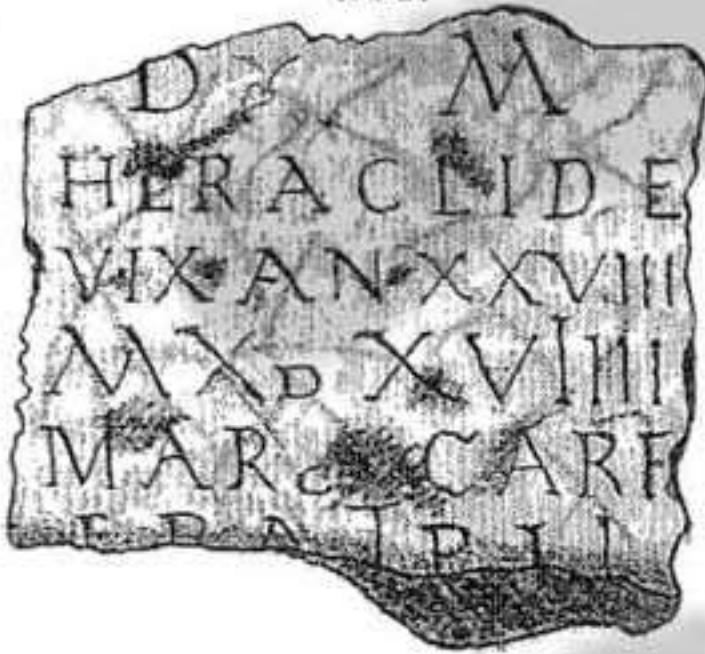 D M
HERACLIDE
VIX AN XXVIII
M X D XVIIII
MAR CARF